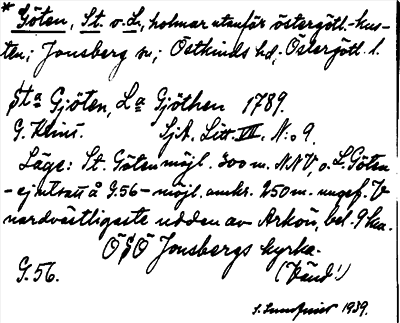 * Göten, St. o. L., holmar utanför östergötl.-kus-
ten; Jonsbergs sn; Östkinds hd; Östergötl. l.
Sta Gjöten, La Gjöthen 1789.
G. Kliuf. Sjk. Litt VII. N:o 9.
Läge: St. Göten möjl. 300 m. NNV, o. L. Göten
- ej utsatt å G.56 - möjl. omkr. 250 m. ungef. V
nordvästligaste udden av Arkön, bel. 9 km.
ÖSÖ Jonsbergs kyrka.
G.56. (Vänd!)
1939.